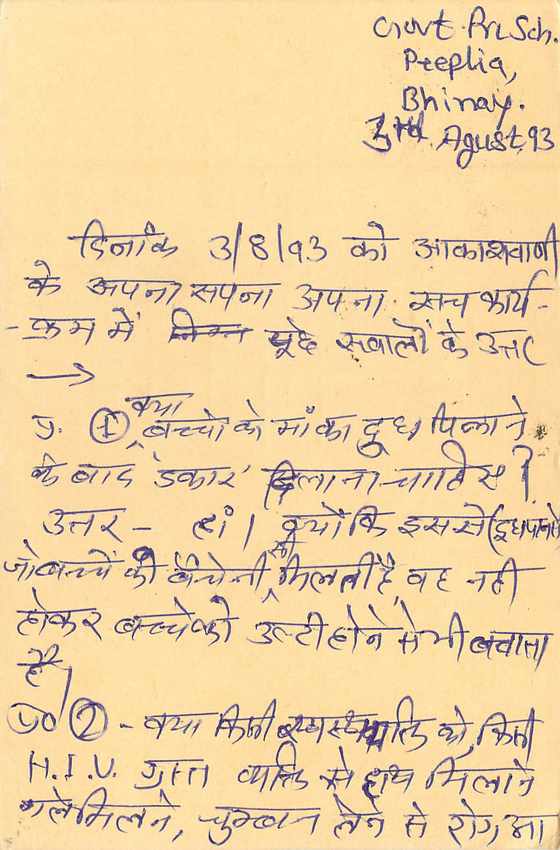 Govt. Pri. Sch.
Peeplia,
Bhinay.
3rd Agust, 93
दिनांक 3/8/93 को आकाशवाणी
के अपना सपना अपना सच कार्य-
-क्रम में पूछे सवालों के उत्तर
→
प्र. ① क्या बच्चो को माँ का दुध पिलाने
के बाद 'डकार' दिलाना चाहिए?
उत्तर - हां। क्यों कि इससे (दुधपलटने)
जो बच्चें को बैचेनी सी मिलती है, वह नही
होकर बच्चेको उल्टी होने से भी बचाता
है।
प्र० ② - क्या किसी स्वस्थ व्यक्ति को, किसी
H.I.V. ग्रस्त व्यक्ति से हाथ मिलाने
गले मिलने, चुम्बन लेने से रोग, आ